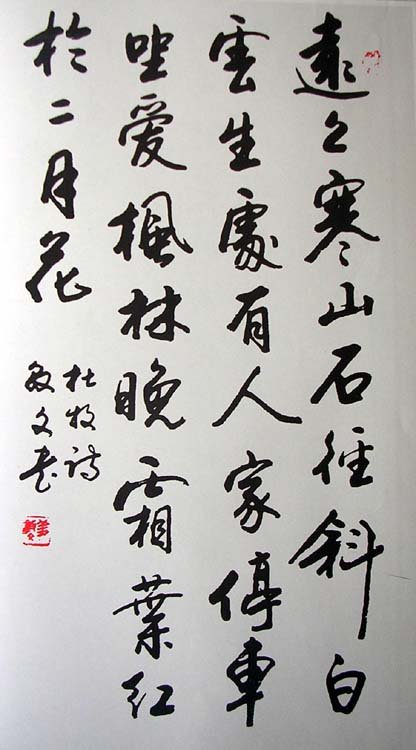 遠上寒山石徑斜白
雲生處有人家停車
坐爱楓林晚霜葉红
於二月花
杜牧詩
敏文书